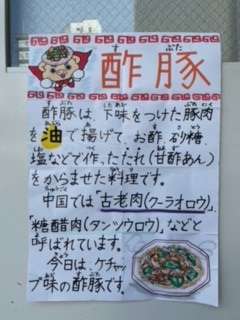 酢豚
酢豚は、下味をつけた豚肉
を油で揚げて、お酢、砂糖、
塩などで作ったたれ(甘酢あん)
をからませた料理です。
中国では「古老肉(クーラオロウ)」
「糖醋肉(タンツウロウ)」などと
呼ばれています。
今日は、ケチャッ
プ味の酢豚です。